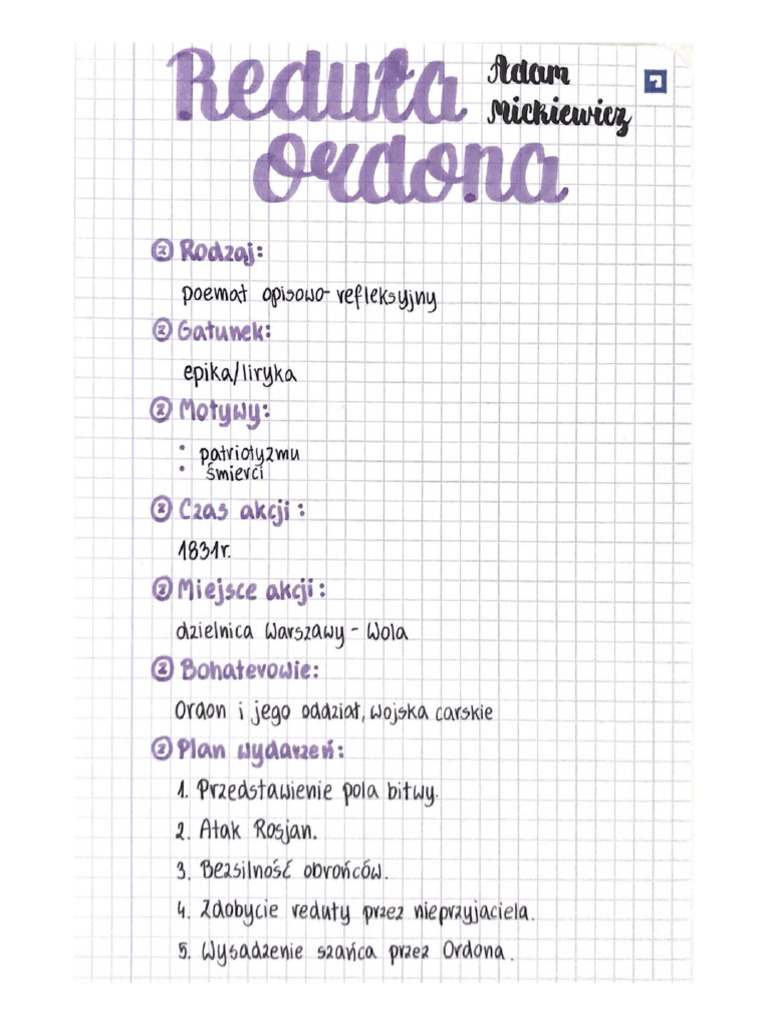 Reduta
Adam
Mickiewicz
Ordona
② Rodzaj:
poemat opisowo-refleksyjny
② Gatunek:
epika/liryka
② Motywy:
• patriotyzmu
• śmierci
② Czas akcji:
1831r.
② Miejsce akcji:
dzielnica Warszawy - Wola
② Bohaterowie:
Ordon i jego oddział, wojska carskie
② Plan wydarzeń:
1. Przedstawienie pola bitwy.
2. Atak Rosjan.
3. Bezsilność obrońców.
4. Zdobycie reduty przez nieprzyjaciela.
5. Wysadzenie szańca przez Ordona.